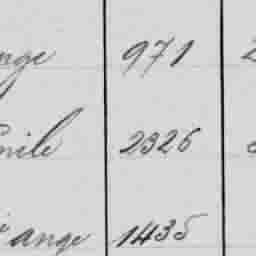 nge 971
mile 2326
ange 1435